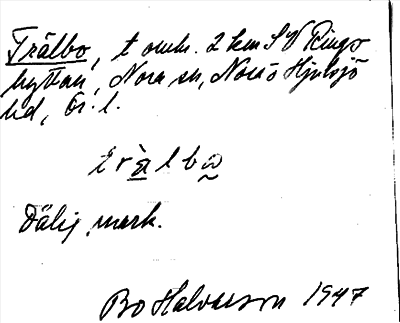 Trälbo, t omr. 2 km SV Rings
hyttan, Nora sn, Nora o Hjulsjö
hd, Ör. l.
trä̀lbω
Dålig mark.
Bo Halvarson 1947